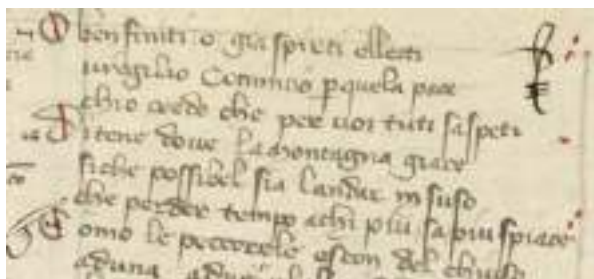 O ben finiti o gia spirti ellecti
virgilio Cominciò p quela pace
chio credo che per voi tuti saspeti
Ditene doue la montagna giace
si che possibel sia landar in suso
che perder tempo a chi piu sa piu spiace
Como le pecorele escon del chiuso
aduna aduna